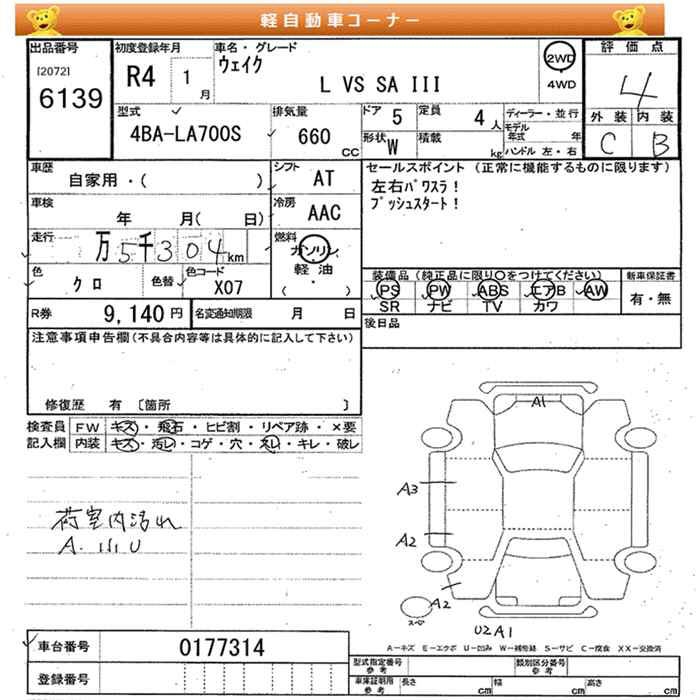 軽自動車コーナー
出品番号 初度登録年月 車名・グレード 評価点
[2072] 6139 R4 1月 ウェイク L VS SA III 2WD 4WD 4
型式 排気量 ドア 5 定員 4人 ディーラー・並行 外装 内装
4BA-LA700S 660 CC 形状 W 積載 kg モデル年式 年 ハンドル 左・右 C B
車歴 シフト セールスポイント (正常に機能するものに限ります)
自家用・( ) AT 左右パワスラ!
車検 冷房 プッシュスタート!
年 月( 日) AAC
走行 万5千304km 燃料 ガソリン・軽油・( )
色 クロ 色替 色コード X07 装備品 (純正品に限り○をつけてください) 新車保証書
PS PW ABS エアB AW 有・無
SR ナビ TV カワ
R券 9,140円 名変通知期限 月 日 後日品
注意事項申告欄 (不具合内容等は具体的に記入して下さい)
修復歴 有 〔箇所 〕
検査員 FW キズ・飛石・ヒビ割・リペア跡・×要
記入欄 内装 キズ・汚レ・コゲ・穴・スレ・キレ・破レ
荷室内汚れ
A. iii U
A1
A3
A2
A2
スペ
U2A1
A-キズ E-エクボ U-凹み W-補修給 S-サビ C-腐食 XX-交換済
車台番号 0177314 型式指定番号 参考 類別区分番号 参考
登録番号 車庫証明用 参考 長さ cm 幅 cm 高さ cm